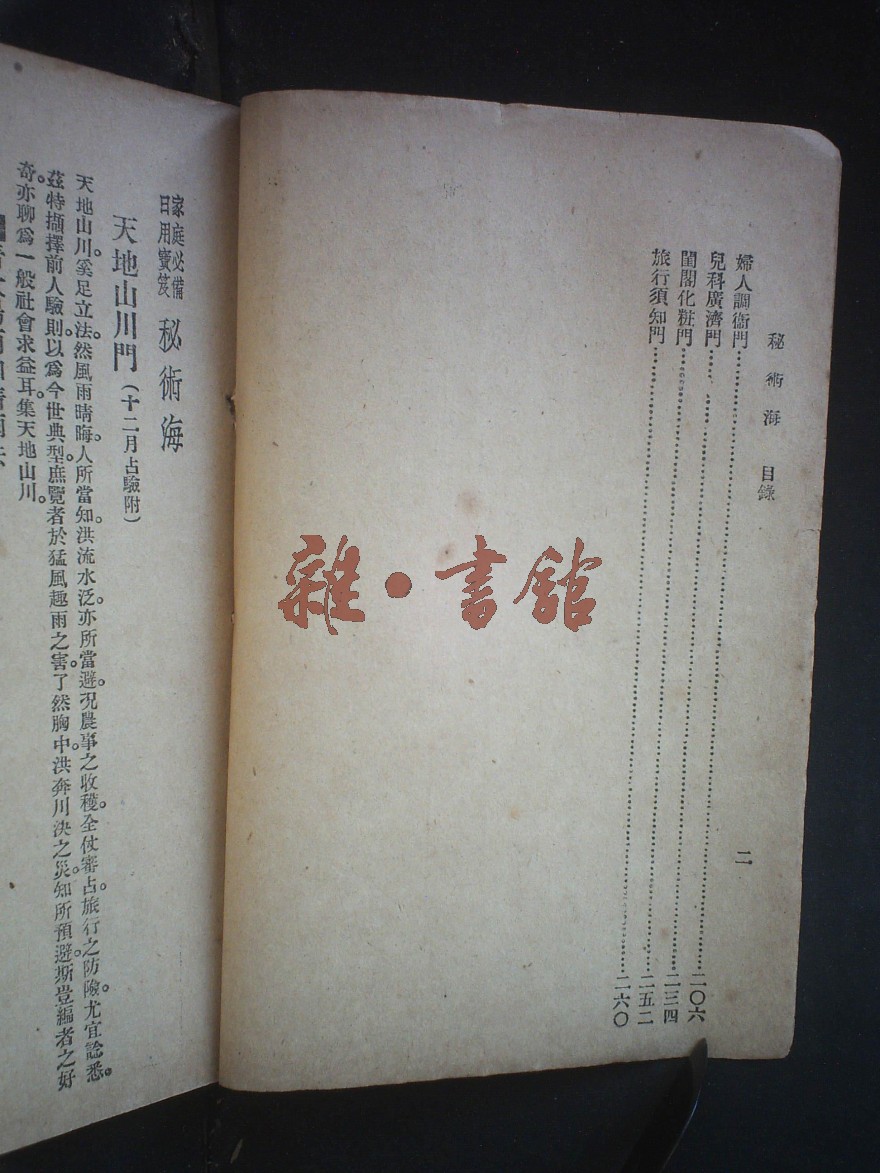 秘術海 目錄 二
婦人調衞門……二〇六
兒科廣濟門……二三四
閨閣化粧門……二五二
旅行須知門……二六〇
雜・書館
家庭必備
日用寶笈
秘術海
天地山川門（十二月占驗附）
天地山川。奚足立法。然風雨晴晦。人所當知。洪流水泛。亦所當避。況農事之收穫。全仗審占。旅行之防險。尤宜諗悉。
茲特擷擇前人驗則。以爲今世典型。庶覽者於猛風趣雨之害。了然胸中。洪奔川決之災。知所預避。斯豈編者之好
奇。亦聊爲一般社會求益耳。集天地山川。